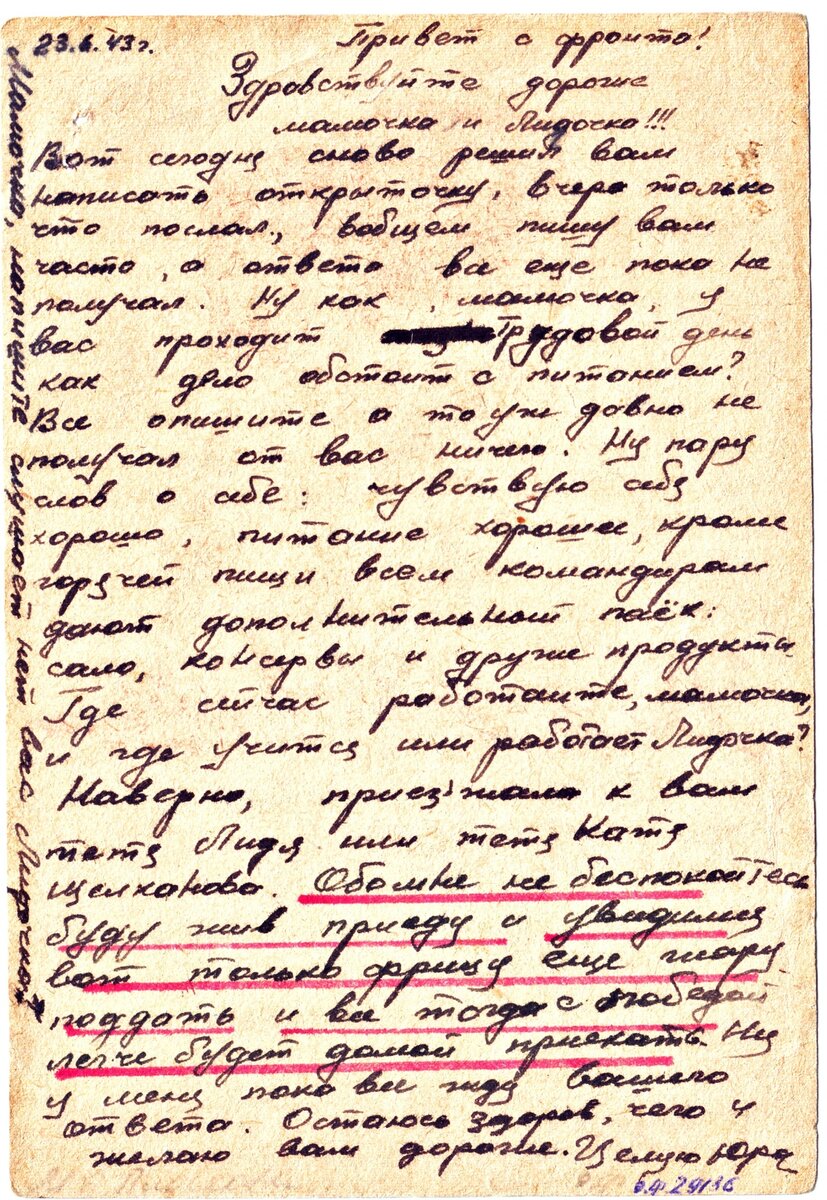 23.6.43 г.
Привет с фронта!
Здравствуйте дорогие
мамочка и Лидочка!!!
Вот сегодня снова решил вам
написать открыточку, вчера только
что послал, вобщем пишу вам
часто, а ответа все еще пока не
получал. Ну как, мамочка, у
вас проходит трудовой день
как дело обстоит с питанием?
Все опишите а то уж давно не
получал от вас ничего. Ну пару
слов о себе: чувствую себя
хорошо, питание хорошее, кроме
горячей пищи всем командирам
дают дополнительный паёк:
сало, консервы и другие продукты.
Где сейчас работаите, мамочка,
и где учится или работает Лидочка?
Наверно, приезжала к вам
тетя Лидя или тетя Катя
Щелканова. Обомне не беспокойтесь
буду жив приеду и увидимся
вот только фрицу еще жару
поддать и все тогда с победой
легче будет домой приехать. Ну
у меня пока все жду вашего
ответа. Остаюсь здоров, чего и
желаю вам дорогие. Целую Юра
Мамочка, напишите слушает нет вас Лидочка?